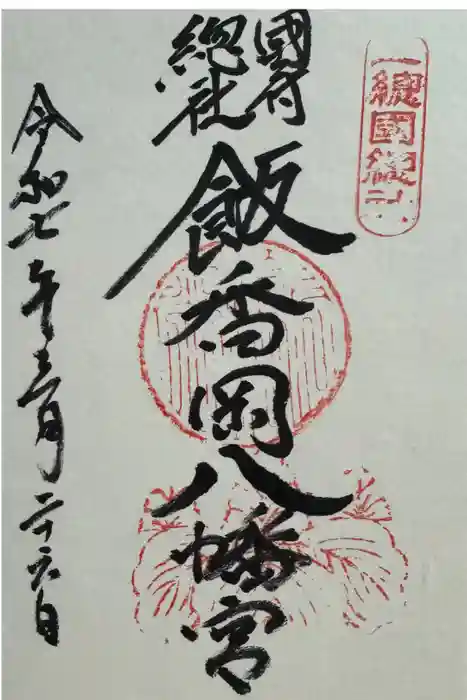 上總國總社
國府
總社
飯香岡八幡宮
令和七年三月二十六日